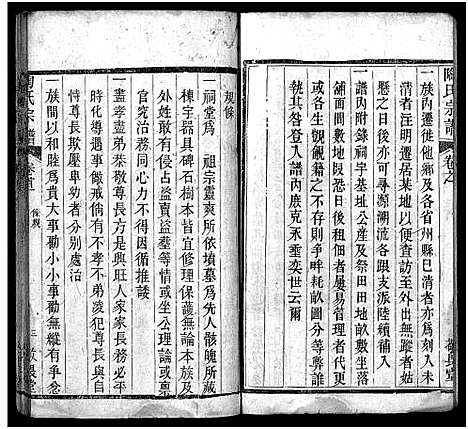 陶氏宗譜
卷之
敬長堂
一族內遷徙他鄉及各省州縣已清者亦為刻入未
清者註明遷居某地以云不忘間有無蹤者姑
懸之日後亦可尋源溯流各跟支派陸續補入
一譜內附錄祠宇基址產及祭田田地畝數并
舖面間數地段恐日後租佃者屢易管理者代更
或各生覬覦籍之不存爭畔耗畝圖小弊混誰
執其咎登入譜內庶克永垂奕世云爾
規條
一祠堂為 祖宗靈爽所依墳墓為先人骸魄所藏
棟宇器具碑石樹木皆宜修理保護無論本族及
外姓如有侵占盜賣盜砍等情或坐公理論或稟
官究治務同心力不因循推諉
一盡孝盡弟恭敬尊長方是興旺人家家長務各
做戒倘有不孝不弟凌犯尊長及
恃尊長欺壓卑幼者分別處治
一族間以和睦為貴大事勸小小事勸無縱有爭忿
陶氏宗譜
卷首
條規
三
敬長堂